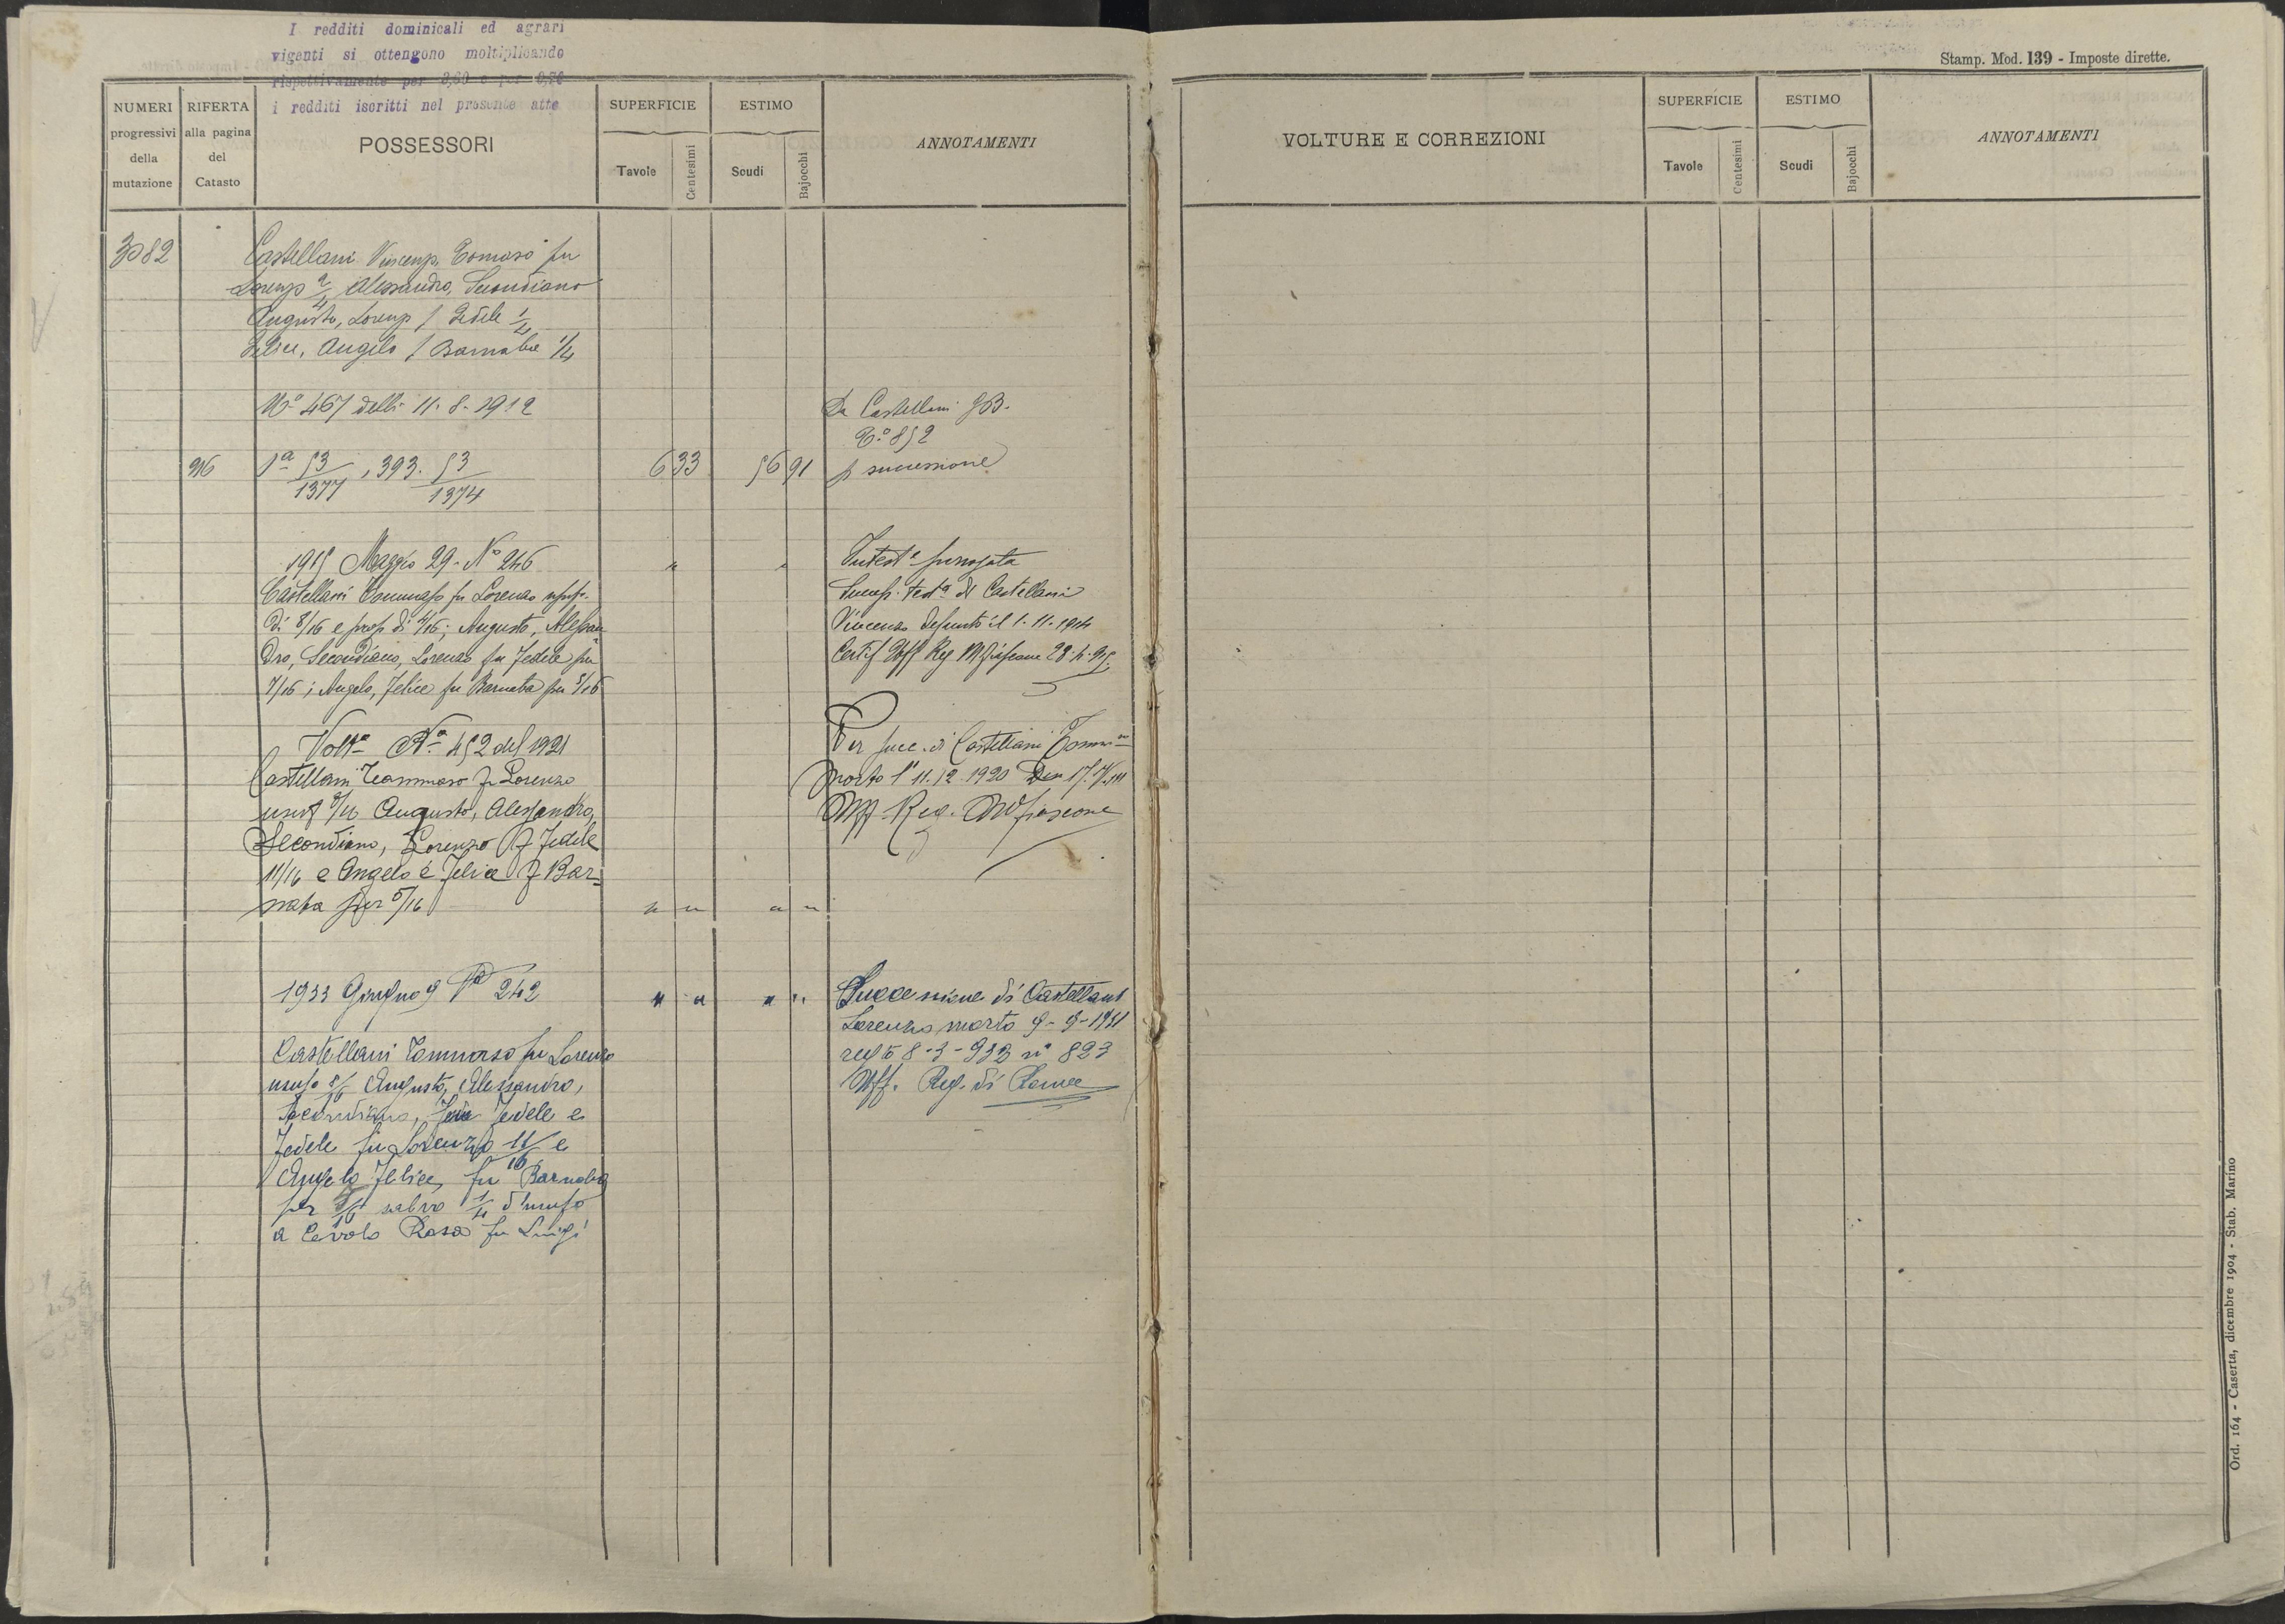 I redditi dominicali ed agrari
vigenti si ottengono moltiplicando
rispettivamente per
i redditi iscritti nel presente atto
Stamp. Mod. 139 - Imposte dirette.
NUMERI progressivi della mutazione
RIFERTA alla pagina del Catasto
POSSESSORI
SUPERFICIE
Tavole
Centesimi
ESTIMO
Scudi
Bajocchi
ANNOTAMENTI
VOLTURE E CORREZIONI
SUPERFICIE
Tavole
Centesimi
ESTIMO
Scudi
Bajocchi
ANNOTAMENTI
3082
Castellani Vincenzo, Tomaso fu
Lorenzo 2/4 Alessandro, Secondiano
Augusto, Lorenzo f Fedele 1/4
Felice, Angelo f Barnaba 1/4
N° 467 delli 11-8-1912
Da Castellani GB.
T.° 852
916 1a 53/1377, 393. 53/1374 6 33 56 91 p successione
1915 Maggio 29 - N° 246 " "
Castellani Tommaso fu Lorenzo usuf.
di 8/16 e prop di 4/16; Augusto, Alessan
dro, Secondiano, Lorenzo fu Fedele per
7/16; Angelo, Felice fu Barnaba per 5/16
Intest surrogata
Success. Test di Castellani
Vincenzo defunto il 1-11-1914
Certif Uff Reg Mfiascone
Volt N° 452 del 1921
Castellani Tommaso f Lorenzo
usuf 8/16 Augusto, Alessandro,
Secondiano, Lorenzo f Fedele
11/16 e Angelo e Felice f Bar=
naba per 5/16 " " " "
Per succ. di Castellani
morto l' 11.12.1920
Uff Reg. Mfiascone
1933 Giugno 9 N° 242 " " " "
Castellani Tommaso fu Lorenzo
usuf° 8/16 Augusto, Alessandro,
Secondiano, Fedele e
Fedele fu Lorenzo 11/16 e
Angelo Felice, fu Barnaba
per 5/16 salvo 1/4 d'usufo
a Cevolo Rosa fu Luigi
Successione di Castellani
Lorenzo morto 9-9-1931
reg to 8-3-932 n° 823
Uff. Reg. di Roma
Ord. 164 - Caserta, dicembre 1904 - Stab. Marino